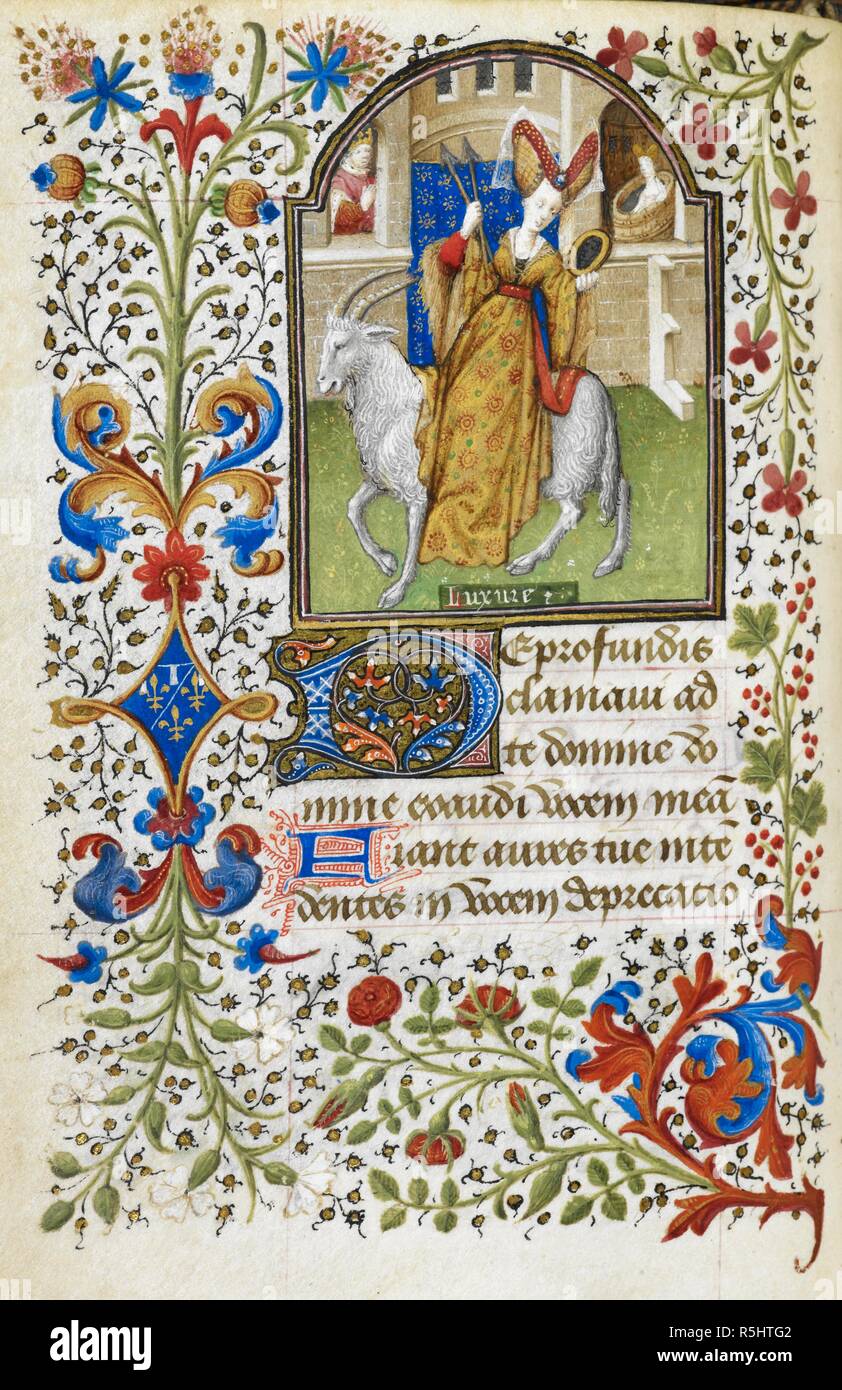 Luxure :
De profundis
clamavi ad
te domine do
mine exaudi vocem meā
Fiant aures tue intē
dentes in vocem deprecatio
alamy
Image ID: R5HTG2
www.alamy.com